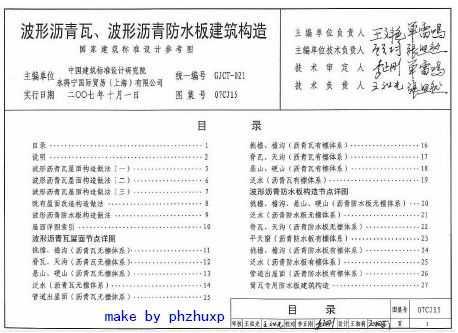 波形沥青瓦、波形沥青防水板建筑构造
国家建筑标准设计参考图
主编单位 中国建筑标准设计研究院
永得宁国际贸易(上海)有限公司
统一编号 GJCT-021
实行日期 二〇〇七年十月一日
图集号 07CJ15
主编单位负责人
主编单位技术负责人
技术审定人
技术负责人
目 录
目录 1
说明 2
波形沥青瓦屋面构造做法(一) 5
波形沥青瓦屋面构造做法(二) 6
波形沥青瓦屋面构造做法(三) 7
既有屋面改造构造做法 8
波形沥青防水板构造做法 9
屋面详图索引 10
波形沥青瓦屋面节点详图
挑檐、檐沟(沥青瓦无檩体系) 11
脊瓦、天沟(沥青瓦无檩体系) 12
悬山、硬山(沥青瓦无檩体系) 13
泛水(沥青瓦无檩体系) 14
管道出屋面(沥青瓦无檩体系) 15
目 录
挑檐、檐沟(沥青瓦有檩体系) 16
脊瓦、天沟(沥青瓦有檩体系) 17
悬山、硬山(沥青瓦有檩体系) 18
泛水(沥青瓦有檩体系) 19
波形沥青防水板构造节点详图
挑檐、檐沟、悬山、硬山(沥青防水板无檩体系) 20
泛水(沥青防水板无檩体系) 21
脊瓦、天沟(沥青防水板无檩体系) 22
平天窗(沥青防水板有檩体系) 23
挑檐、檐沟(沥青防水板有檩体系) 24
泛水(沥青防水板有檩体系) 25
管道出屋面(沥青防水板有檩体系) 26
筒瓦专用防水板建筑构造 27
目 录
图集号 07CJ15
make by phzhuxp